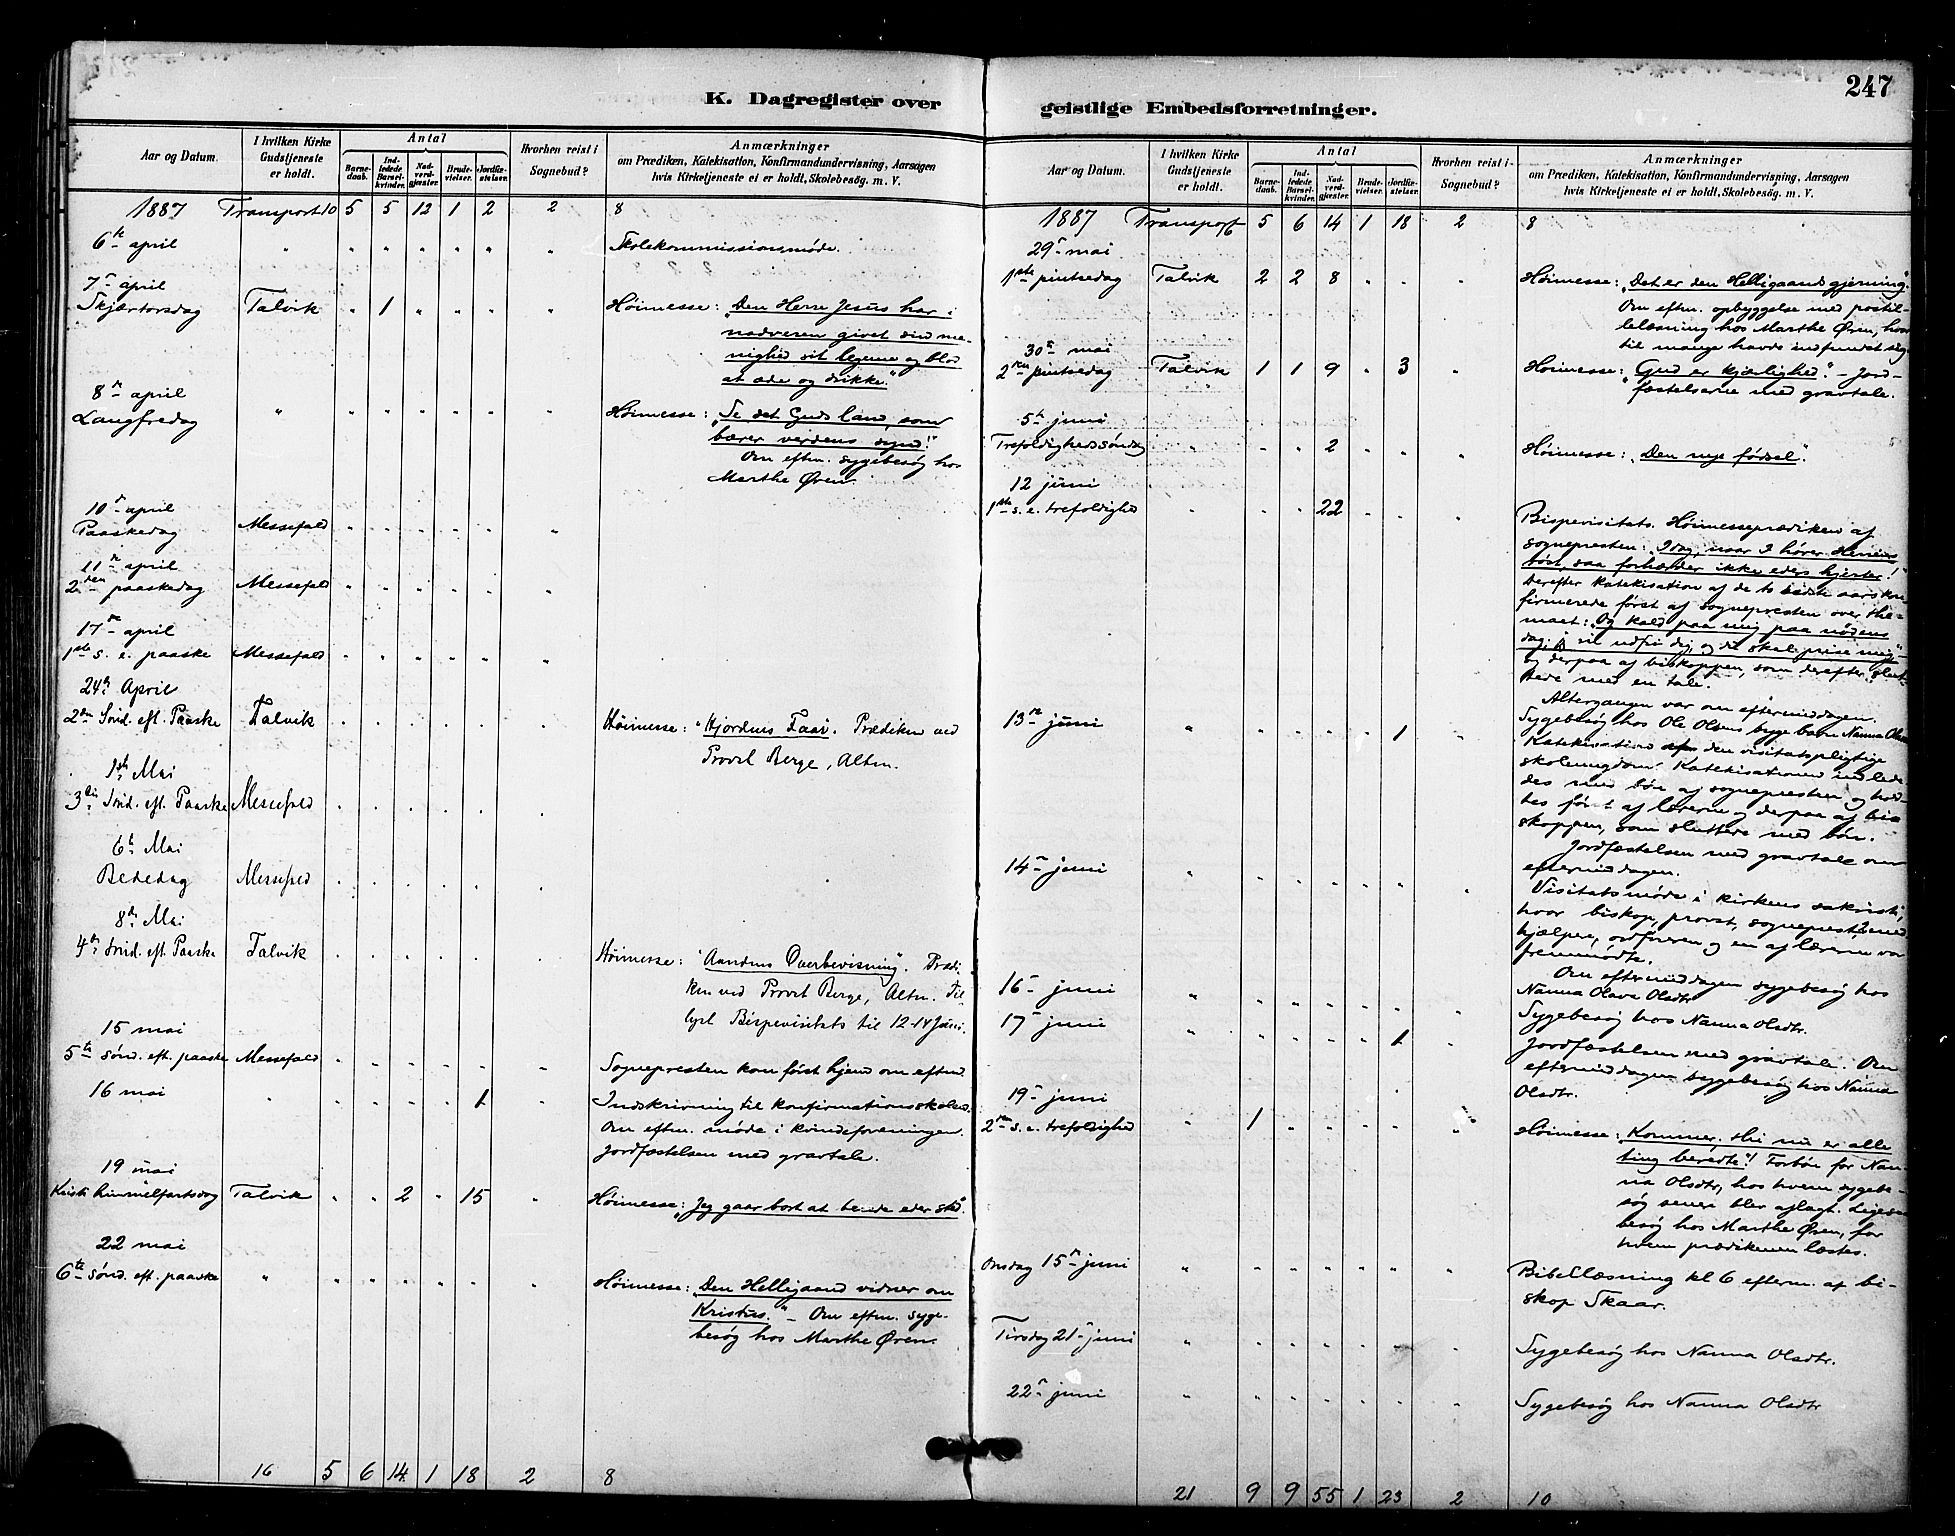 K. Dagregister over
Aar og Datum.
I hvilken Kirke Gudstjeneste er holdt.
Antal
Barnedaab.
Indledede Barselkvinder.
Nadverdgjester.
Brudevielser.
Jordfæstelser.
Hvorhen reist i Sognebud?
Anmærkninger
om Prædiken, Katekisation, Konfirmandundervisning, Aarsagen
hvis Kirketjeneste ei er holdt, Skolebesøg. m. V.
1887 Transport 10 5 5 12 1 2 2 8
6te april " " " " " " " Skolekommissionsmøde.
7de april
Skjærtorsdag Talvik " 1 " " " " Høimesse: "Den Herre Jesus har i
nadveren givet sin me-
nighed sit legeme og blod
at æde og drikke."
8de april
Langfredag " " " " " " " Høimesse: "Se det Guds lam, som
bærer verdens synd!"
Om eftm. sygebesøg hos
Marthe Øren.
10de april
Paaskedag Messefald " " " " " "
11te april
2den paaskedag Messefald " " " " " "
17de april
1ste s. e. paaske Messefald " " " " " "
24de April
2den Sønd. eft. Paaske Talvik " " " " " " Høimesse: "Hjordens Faar. Prædiken ved
Provst Berge, Alten.
1ste Mai
3die Sønd. eft. Paaske Messefald " " " " " "
6te Mai
Bededag Messefald " " " " " "
8de Mai
4de Sønd. eft. Paaske Talvik " " " " " " Høimesse: "Aandens Overbevisning". Prædi-
ken ved Provst Berge, Alten. Til-
lyst Bispevisitats til 12-14 Juni.
15 mai
5te sønd. eft. paaske Messefald " " " " " " Sognepresten kom først hjem om eftmd.
16 mai " " " " " 1 " Indskrivning til konfirmationsskolen.
Om eftm. møde i kvindeforeningen.
Jordfæstelsen med gravtale.
19 mai
Kristi himmelfartsdag Talvik " " 2 " 15 " Høimesse: "Jeg gaar bort at berede eder sted".
22 mai
6te sønd. eft. paaske " " " " " " " Høimesse: "Den Helligaand vidner om
Kristus." - Om eftm. syge-
besøg hos Marthe Øren.
16 5 6 14 1 18 2 8
247
geistlige Embedsforretninger.
Aar og Datum.
I hvilken Kirke Gudstjeneste er holdt.
Antal
Barnedaab.
Indledede Barselkvinder.
Nadverdgjester.
Brudevielser.
Jordfæstelser.
Hvorhen reist i Sognebud?
Anmærkninger
om Prædiken, Katekisation, Konfirmandundervisning, Aarsagen
hvis Kirketjeneste ei er holdt, Skolebesøg. m. V.
1887 Transport 5 6 14 1 18 2 8
29de mai
1ste pintsedag Talvik 2 2 8 " " " Høimesse: "Det er den Helligaands gjerning."
Om eftm. opbyggelse med postil-
lelæsning hos Marthe Øren, hvor
til mange havde indfundet sig.
30te mai
2den pintsedag Talvik 1 1 9 " 3 " Høimesse: "Gud er kjærlighed". - Jord-
fæstelserne med gravtale.
5te juni
Trefoldighedssøndag " " " 2 " " " Høimesse: "Den nye fødsel".
12 juni
1ste s. e. trefoldighed " " " 22 " " " Bispevisitats. Høimesseprædiken af
sognepresten: "Idag, naar I hører Herrens
røst, saa forhærder ikke eders hjerter!"
Derefter katekisation af de to sidste aars kon-
firmerede først af sognepresten over
"Og kald paa mig paa nødens
dag; jeg vil udfri dig, og du skal prise mig"
og derpaa af biskoppen, som derefter slut-
tede med en tale.
Altergangen var om eftermiddagen.
13de juni " " " " " 1 " Sygebesøg hos Ole Olsens syge barn Nanna Olava
Katekisation af den visitatspligtige
skoleungdom. Katekisationen indlede-
des med bøn af sognepresten og hold-
tes først af lærerne og derpaa af bi-
skoppen, som sluttede med bøn.
Jordfæstelsen med gravtale om
eftermiddagen.
14de juni " " " " " " " Visitatsmøde i kirkens sakristi,
hvor biskop, provst, sognepresten med
hjælper, ordføreren og en af lærerne var
fremmødte.
Om eftermiddagen sygebesøg hos
Nanna Olava Olsdtr.
16de juni " " " " " " " Sygebesøg hos Nanna Olsdtr.
17de juni " " " " " 1 " Jordfæstelsen med gravtale. Om
eftermiddagen sygebesøg hos Nanna
Olsdtr.
19de juni
2den s. e. trefoldighed " 1 " " " " " Høimesse: "Kommer, thi nu er alle
ting beredte"! Forbøn for Nan-
na Olsdtr, hos hvem sygebe-
søg senere blev aflagt. Ligesaa
besøg hos Marthe Øren, for
hvem prædikenen læstes.
Onsdag 15de juni " " " " " " " Bibellæsning kl 6 efterm. af bi-
skop Skaar.
Tirsdag 21de juni " " " " " " " Sygebesøg hos Nanna Olsdtr.
22de juni " " " " " " " Sygebesøg hos Nanna Olsdtr
21 9 9 55 1 23 2 10